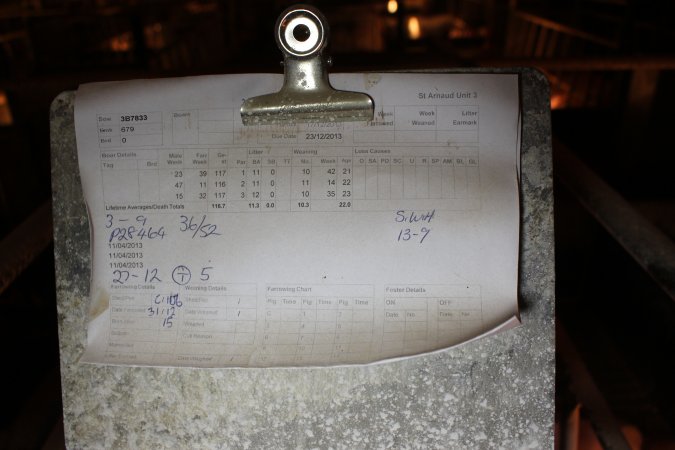 St Arnaud Unit 3
Sow 3B7833 Boars Week Week Litter
tank 679 Farrowed Weaned Earmark
Brd 0 Due Date 23/12/2013
Boar Details Mate Farr Ge- Litter Weaning Loss Causes
Tag Brd Week Week st Par BA SB TT No. Week Age O SA PD SC U R SP AM BL GL
23 39 117 1 11 0 10 42 21
47 11 116 2 11 0 11 14 22
15 32 117 3 12 0 10 35 23
Lifetime Averages/Death Totals 116.7 11.3 0.0 10.3 22.0
3 - 9 36/52 S.W.H
P28464 13-9
11/04/2013
11/04/2013
11/04/2013
27-12 T 5
Farrowing Details Weaning Details Farrowing Chart Foster Details
Shed/Pen Shed/Pen / Pig Time Pig Time Pig Time ON OFF
Date Farrowed 31/12 Date Weaned / Date No. Date No.
Born Alive 15 Weaned